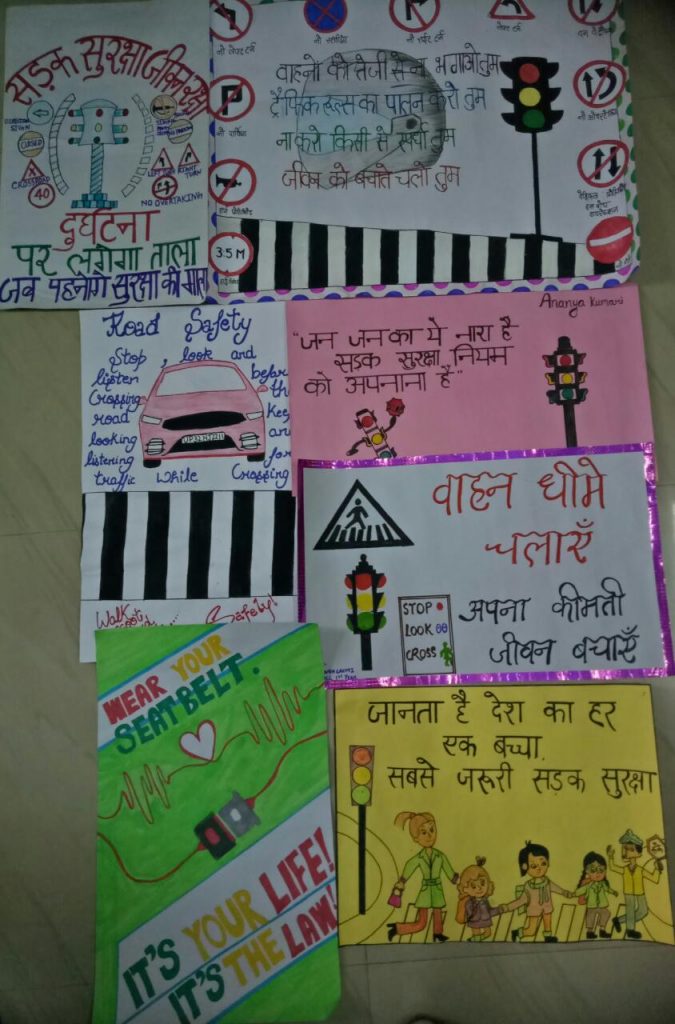 सड़क सुरक्षा जीवन रक्षा
CLOSED
CROSSROAD
40
NO OVERTAKING
दुर्घटना
पर लगेगा ताला
जब पहनोगे सुरक्षा की माला
वाहनों को तेजी से न भगाओ तुम
ट्रैफिक रूल्स का पालन करो तुम
ना करो किसी से स्पर्धा तुम
जीवन को बचाते चलो तुम
P
3.5 M
Road Safety
Stop, look and
lipsten before
Cropping the
road Keep
looking and
listening for
traffic while Cropping
Walk
Safety!
Ananya Kumari
"जन जन का ये नारा है
सड़क सुरक्षा नियम
को अपनाना है"
वाहन धीमे
चलाएँ
STOP
LOOK
CROSS
अपना कीमती
जीवन बचाएँ
WEAR YOUR
SEATBELT.
IT'S YOUR LIFE!
IT'S THE LAW!
जानता है देश का हर
एक बच्चा,
सबसे जरूरी सड़क सुरक्षा